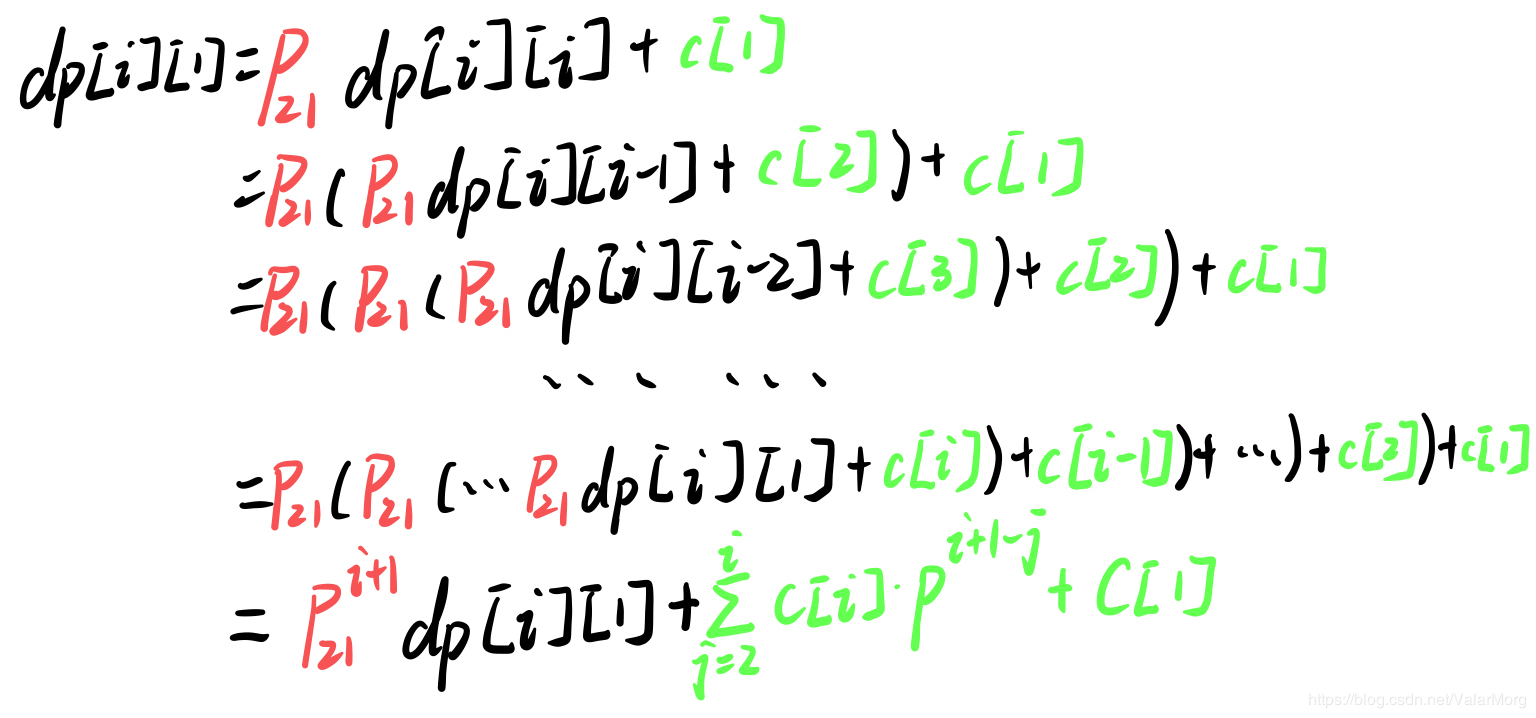 dp[i][1]=P₂₁ dp[i][i]+c[1]
=P₂₁(P₂₁dp[i][i-1]+c[2])+c[1]
=P₂₁(P₂₁(P₂₁dp[i][i-2]+c[3])+c[2])+c[1]
......
=P₂₁(P₂₁(...P₂₁dp[i][1]+c[i])+c[i-1])+...)+c[2])+c[1]
=P₂₁^{i+1}dp[i][1]+∑_{j=2}^{i}c[i]·p^{i+1-j}+C[1]
https://blog.csdn.net/ValarMorg